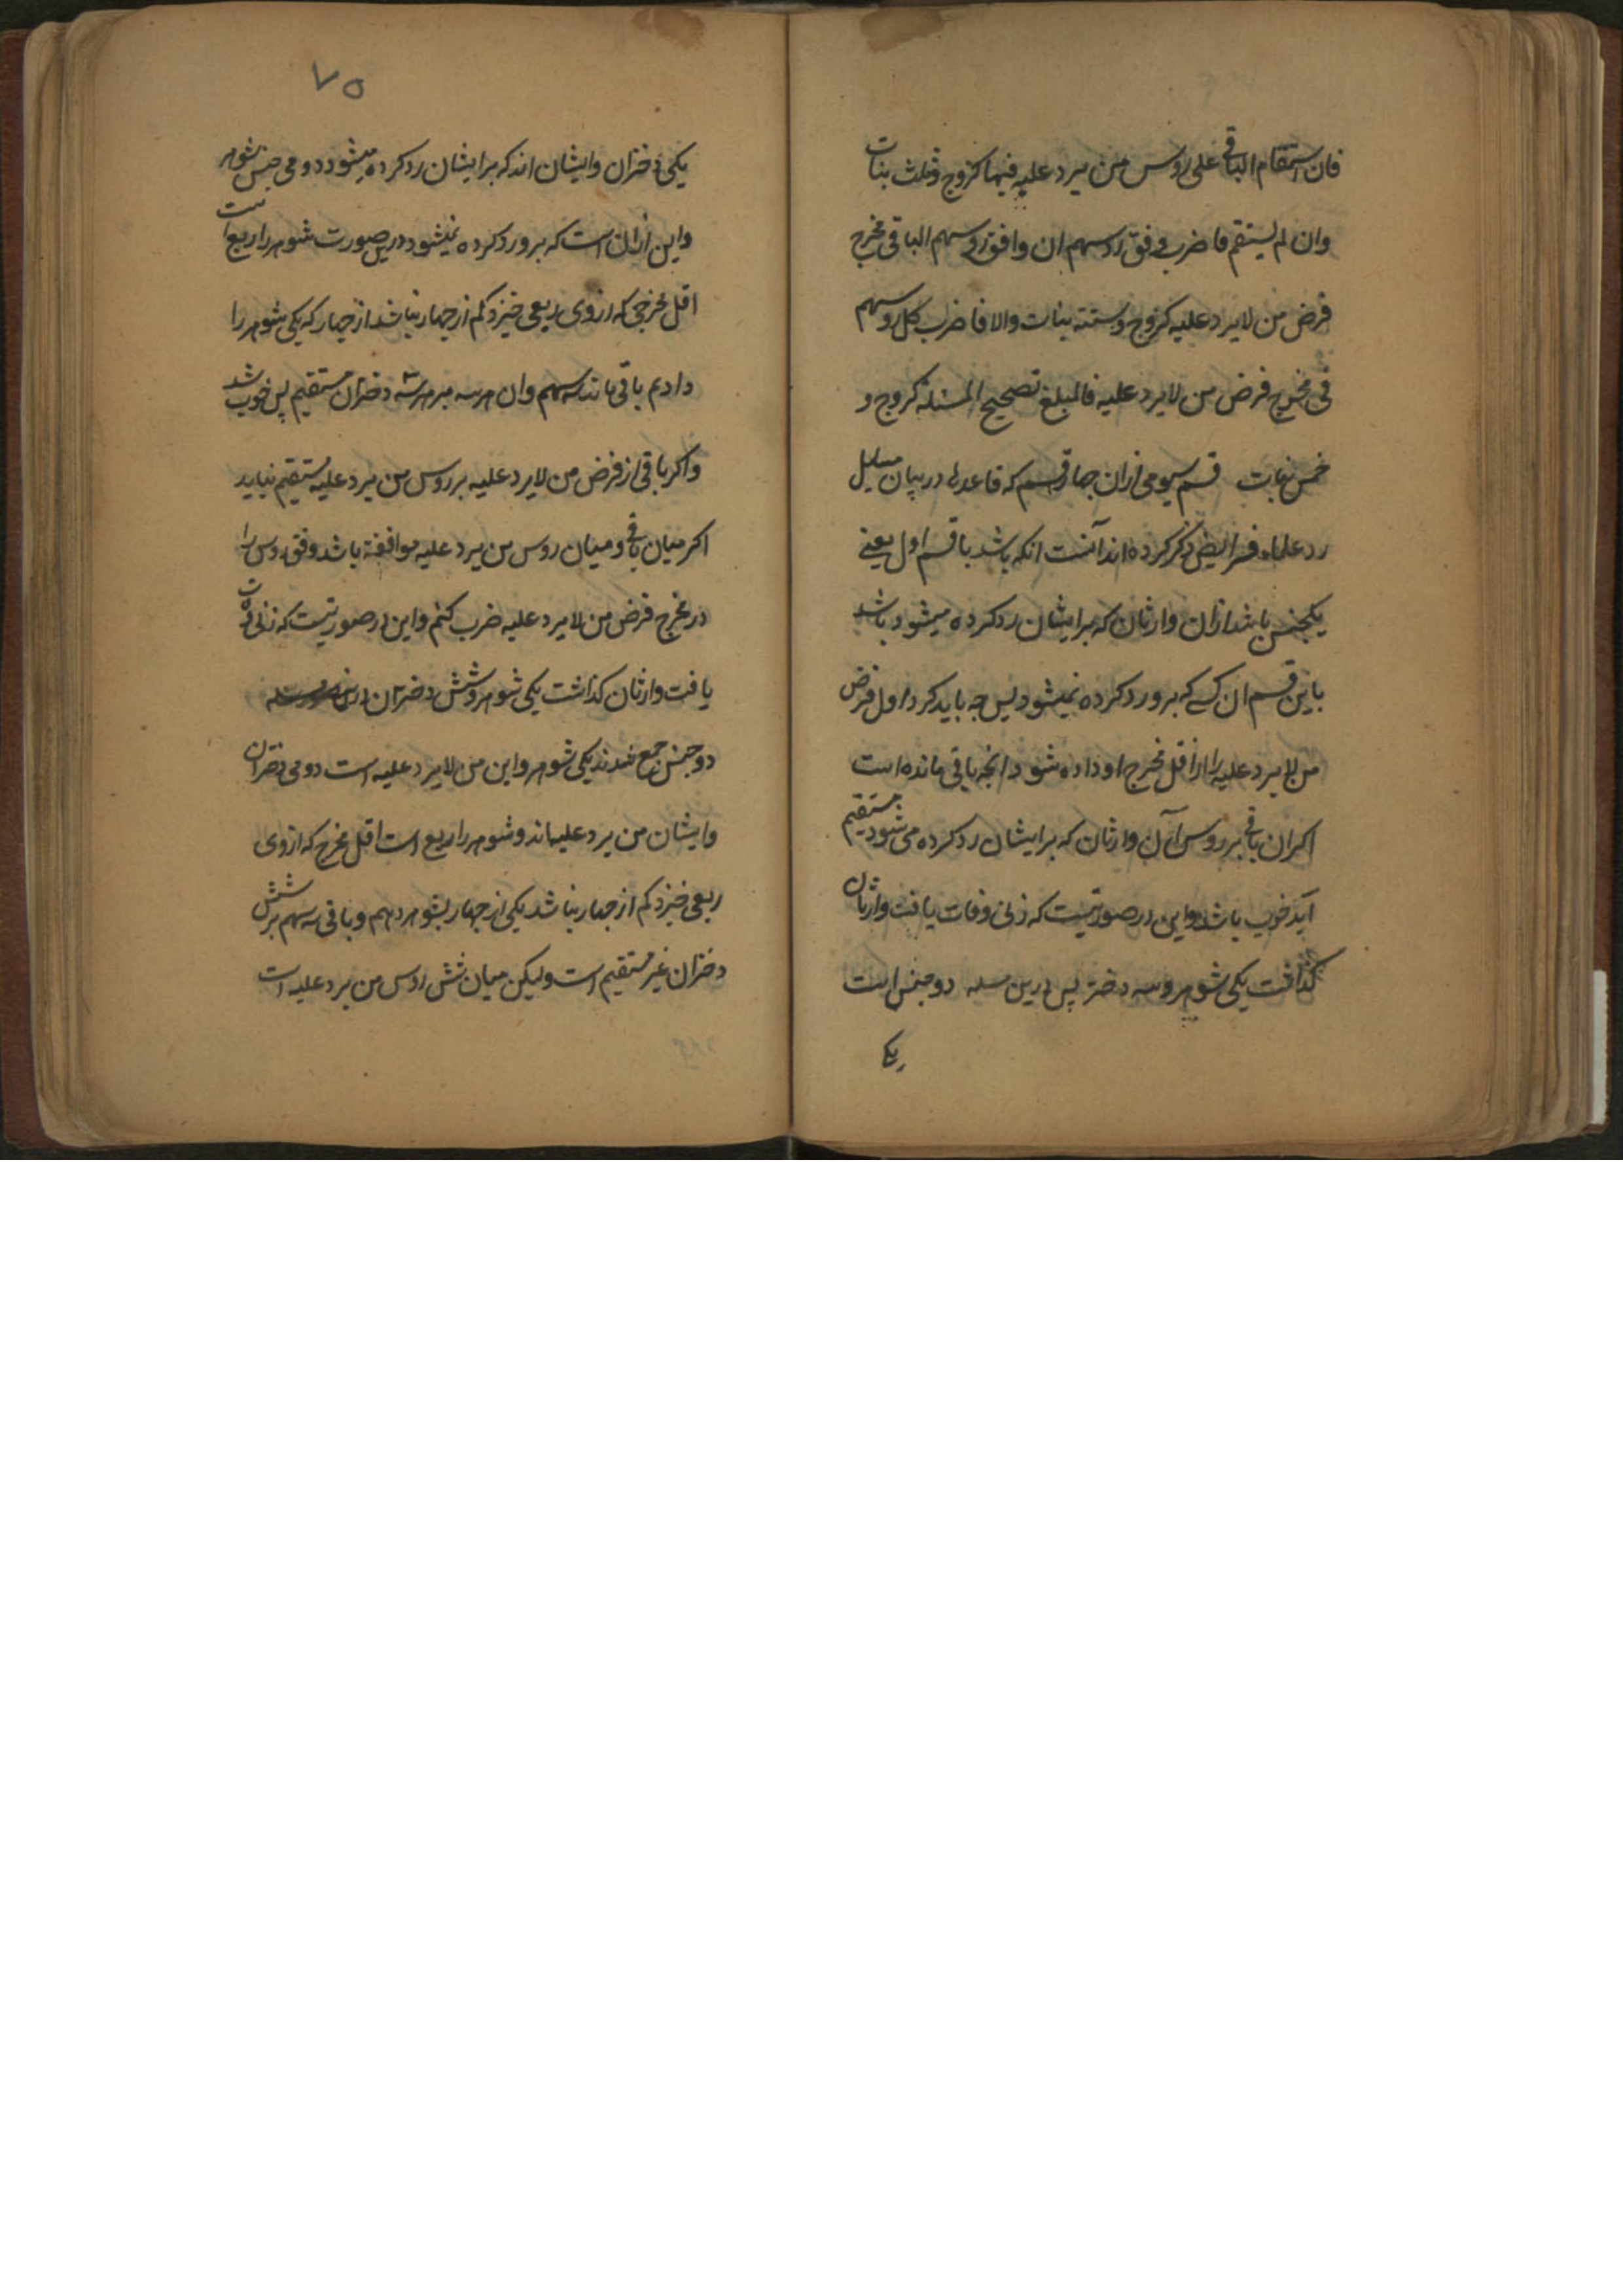 فان استقام الباقی علی روس من یرد علیه فبها کزوج وثلث بنات
وان لم یستقم فاضرب وفق روسهم ان وافق روسهم الباقی فی مخرج
فرض من لایرد علیه کزوج وستة بنات والا فاضرب کل روسهم
فی مخرج فرض من لایرد علیه فالمبلغ تصحیح المسئلة کزوج و
خمس بنات قسم سیومی ازان چهار قسم که قاعدها در بیان مسایل
رد علماء فرایض ذکر کرده اند آنست انکه باشد با قسم اول یعنے
یکجنس باشد ازان وارثان که برایشان رد کرده میشود باشد
باین قسم ان کسے که برو رد کرده نمیشود پس چه باید کرد اول فرض
من لایرد علیه را از اقل مخرج او داده شود انچه باقی مانده است
اکر ان باقی بر روس آن وارثان که برایشان رد کرده می شود مستقیم
آید خوب باشد واین در صورتیست که زنی وفات یافت وارثان
کذاشت یکی شوهر وسه دختر پس درین مسله دو جنس است
یکی
۷۵
یکی دختران وایشان اند که برایشان رد کرده میشود دومی جنس شوهر
واین ازان است که برو رد کرده نمیشود درین صورت شوهر را ربع است
اقل مخرجی که ازوی ربعی خیزد کم از چهار نباشد از چهار که یکی شوهر را
دادم باقی ماند سه سهم وان هر سه بر هر سه دختران مستقیم پس خوب شد
واکر باقی از فرض من لایرد علیه بر روس من یرد علیه مستقیم نیاید
اکر میان باقی ومیان روس من یرد علیه موافقة باشد وفق روس را
در مخرج فرض من لایرد علیه ضرب کنم واین در صورتیست که زنی وفات
یافت وارثان کذاشت یکی شوهر وشش دختران درین
دو جنس جمع شدند یکی شوهر واین من لایرد علیه است دومی دختران
وایشان من یرد علیه اند وشوهر را ربع است اقل مخرج که ازوی
ربعی خیزد کم از چهار نباشد یکی از چهار بشوهر دهم وباقی سه سهم بر شش
دختران غیر مستقیم است ولیکن میان شش روس من یرد علیه است